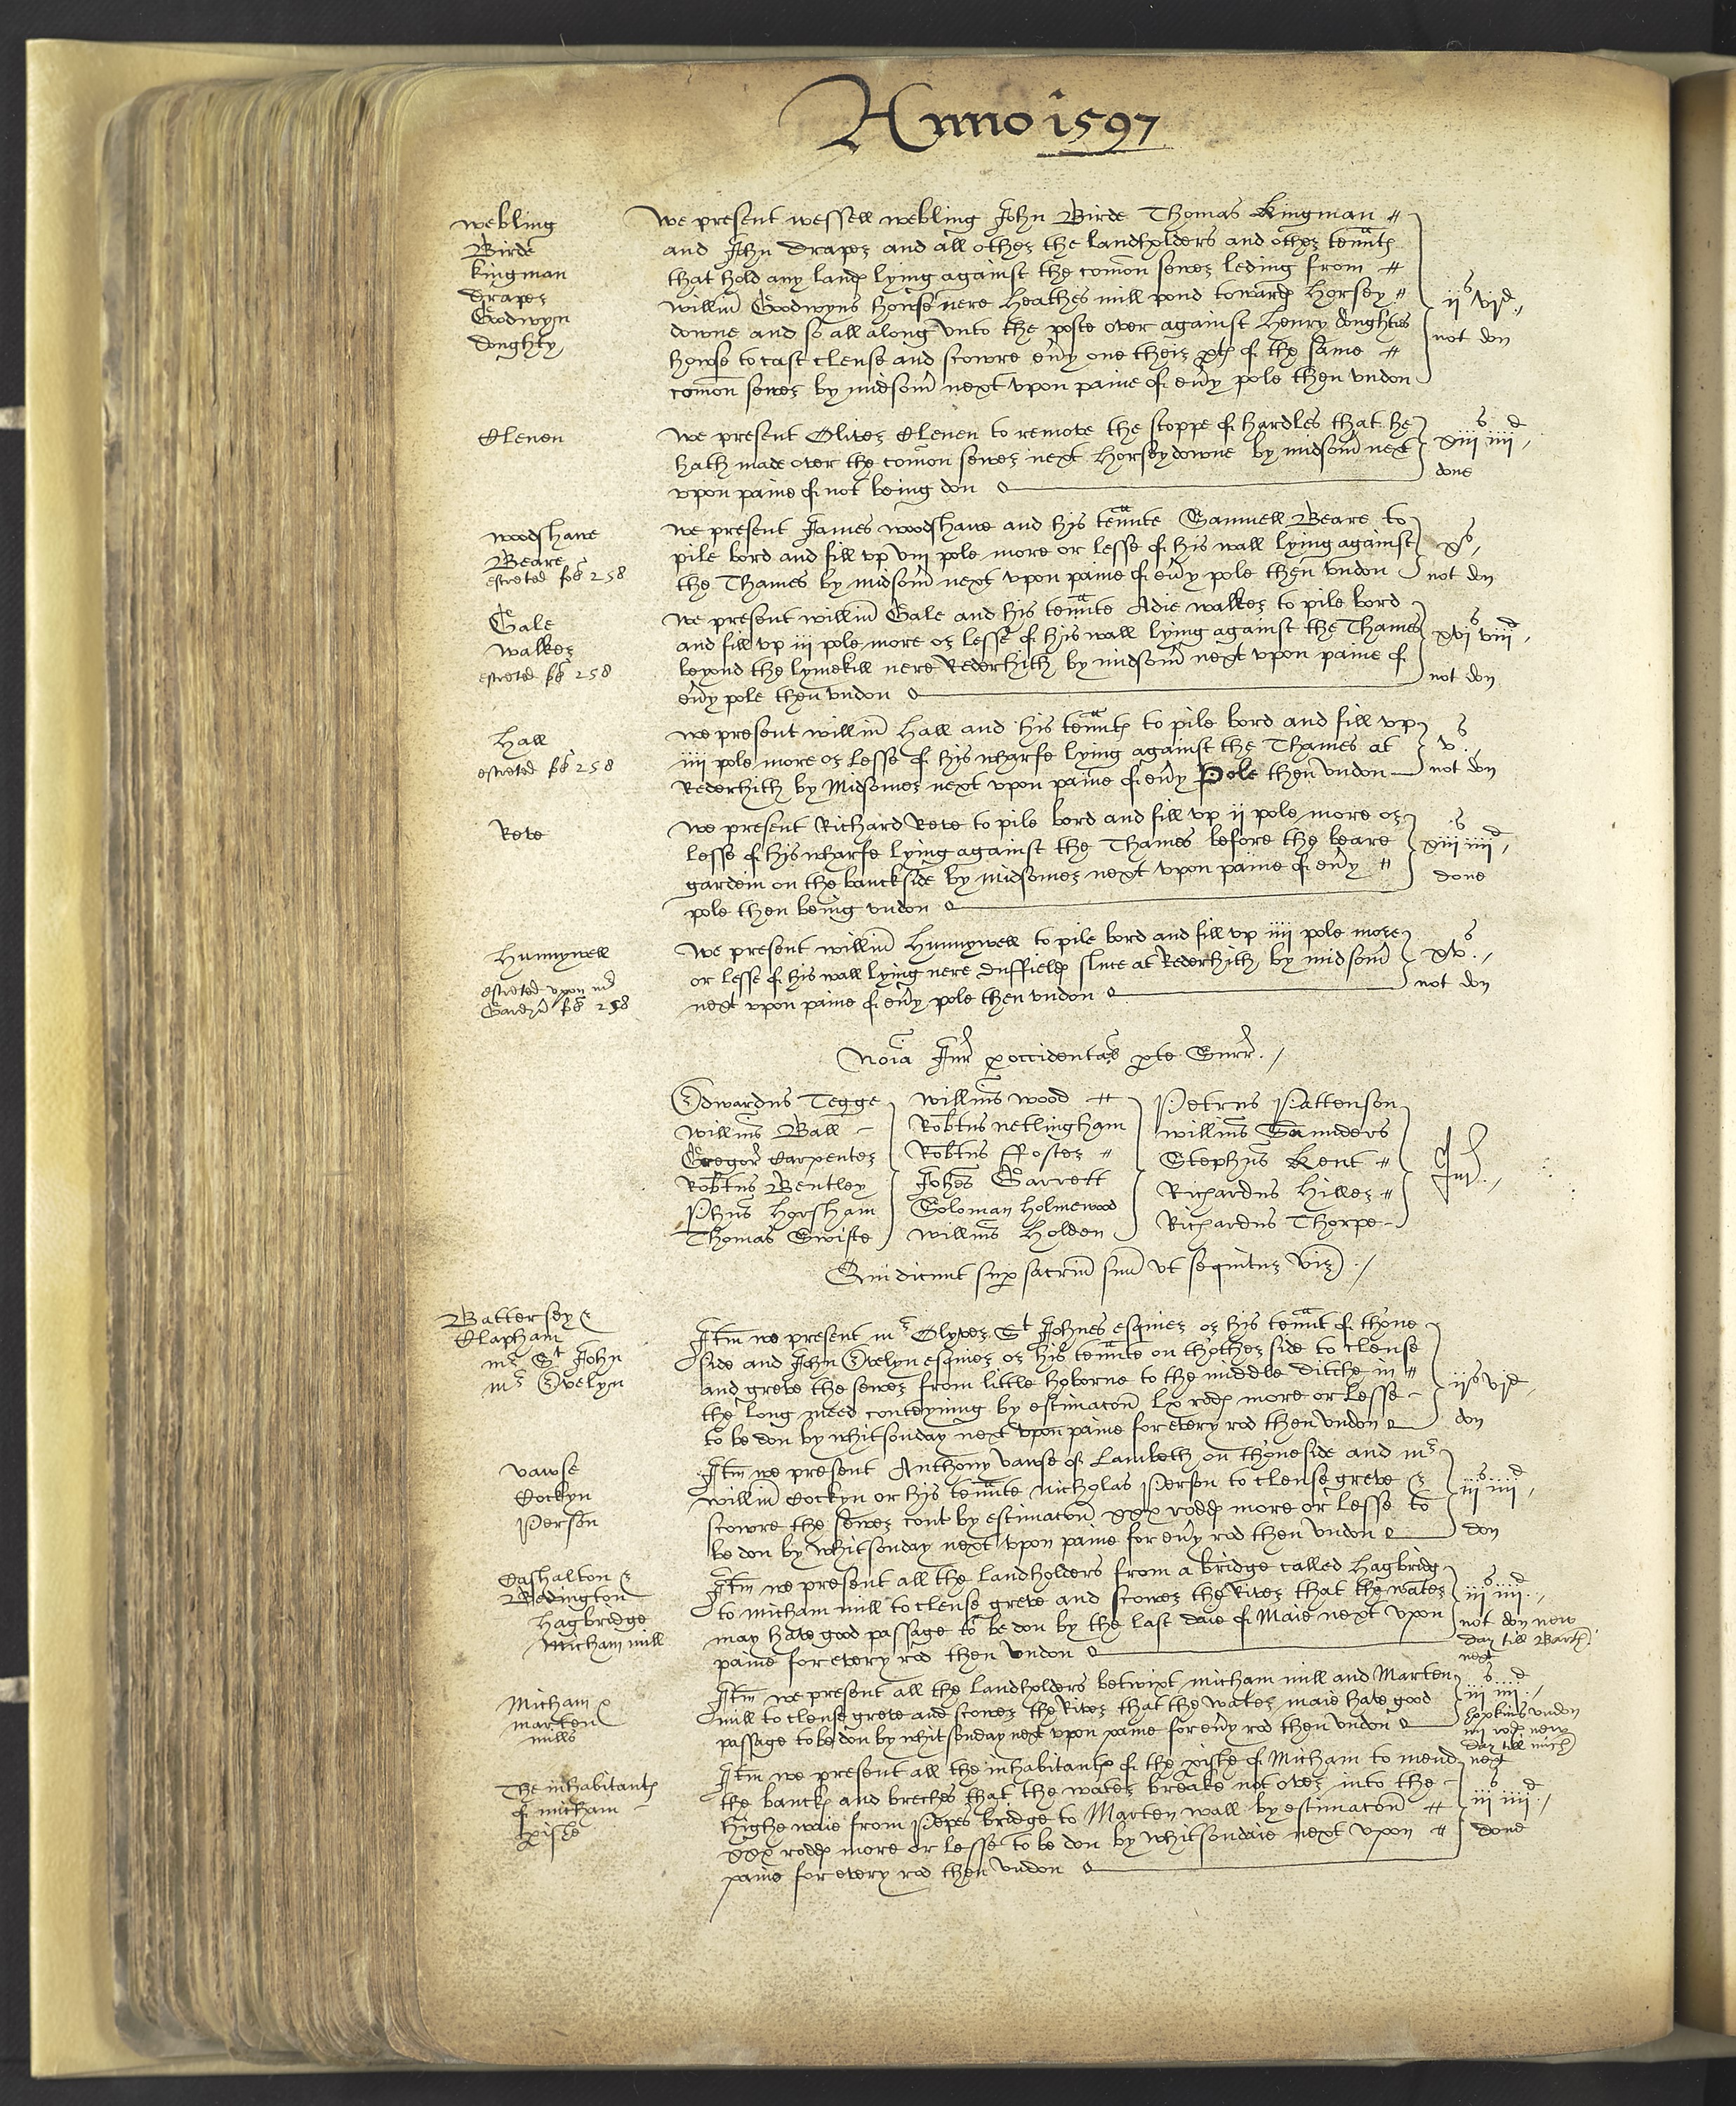 Anno 1597
webling
Birde
kingman
draper
Godwyn
doughty
we present wessell webling John Birde Thomas Kingman
and John draper and all other the landholders and other tennts
that hold any lands lying against the comon sewer leding from
willm Goodwyns howse nere heathes mill pond towards horsey
downe and so all along vnto the poste over against henry doughties
howse to cast clense and scowre eny one their pts of the same
comon sewer by midsom next vpon paine of eny pole then vndon
iis vid
not don
Clenen
we present Oliver Clenen to remove the stoppe of hardles that he
hath made over the comon sewer next horseydowne by midsom next
vpon paine of not being don
xiiis iiiid
done
woodshawe
Beare
estreted fo 258
we present James woodshawe and his tennte Samuell Beare to
pile bord and fill vp viii pole more or lesse of his wall lying against
the Thames by midsom next vpon paine of eny pole then vndon
xs
not don
Gale
walker
estreted fo 258
we present willm Gale and his tennte Adie walker to pile bord
and fill vp iii pole more or lesse of his wall lying against the Thames
beyond the lymekill nere Rederhith by midsom next vpon paine of
eny pole then vndon
xvis viiid
not don
hall
estreted fo 258
we present willm hall and his tennts to pile bord and fill vp
iiii pole more or lesse of his wharfe lying against the Thames at
Rederhith by Midsomer next vpon paine of eny Pole then vndon
vs
not don
Reve
we present Richard Reve to pile bord and fill vp ii pole more or
lesse of his wharfe lying against the Thames before the beare
gardein on the banckside by midsomer next vpon paine of eny
pole then being vndon
xiiis iiiid
done
Hunnywell
estreted vpon
fo 258
we present willm Hunnywell to pile bord and fill vp iiii pole more
or lesse of his wall lying nere duffields sluce at Rederhith by midsom
next vpon paine of eny pole then vndon
xvs
not don
Noia Jur p occidental pte Surr
Edwardus Tegge
willms Ball
Gregor Carpenter
Robtus Bentley
Phus horsham
Thomas Swifte
willms wood
Robtus netlingham
Robtus ffoster
Johes Garrett
Soloman holmewood
willms holden
Petrus Pattenson
willms Saunders
Stephus Kent
Richardus hiller
Richardus Thorpe
Jur
Qui dicunt sup sacrm suu vt sequitur viz
Battersey &
Clapham
mr St John
mr Evelyn
Itm we present mr Olyver St Johnes esquier or his tennt of thone
side and John Evelyn esquier or his tennte on thother side to clense
and greve the sewer from little holborne to the middle ditche in
the long meed conteyning by estimacon lx rods more or lesse
to be don by whitsonday next vpon paine for every rod then vndon
iis vid
don
vawse
Cockyn
Person
Itm we present Anthony vawse of Lambeth on thoneside and mr
willm Cockyn or his tennte nicholas Person to clense greve &
scowre the sewer cont by estimacon xxx rodds more or lesse to
be don by whitsonday next vpon paine for eny rod then vndon
iiis iiiid
don
Cashalton &
Bedington
hagbridge
Micham mill
Itm we present all the landholders from a bridge called hagbridg
to micham mill to clense greve and scower the River that the water
may have good passage to be don by the last daie of Maie next vpon
paine for every rod then vndon
iiis iiiid
not don new
day till Barth
next
Micham &
marten
mills
Itm we present all the landholders betwixt micham mill and Marten
mill to clense greve and scower the River that the water maie have good
passage to be don by whitsonday next vpon paine for eny rod then vndon
iiis iiiid
hopkins vndon
iiii rods new
day till mich
next
The inhabitants
of micham
pishe
Itm we present all the inhabitants of the pishe of Micham to mend
the bancks and breches that the water breake not over into the
highe waie from Pepes bridge to Marten wall by estimacon
xxx rodds more or lesse to be don by whitsondaie next vpon
paine for every rod then vndon
iiis iiiid
done